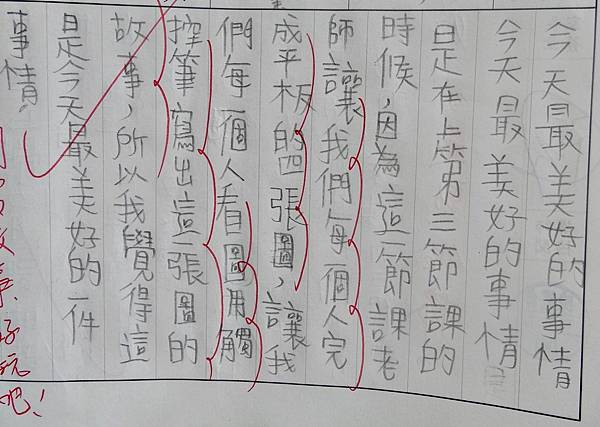 今天最美好的事情
今天最美好的事情
是在上第三節課的
時候，因為這一節課老
師讓我們每一個人完
成平板的四張圖，讓我
們每一個人看圖用觸
控筆寫出這一張圖的
故事，所以我覺得這
是今天最美好的一件
事情。
好玩吧！